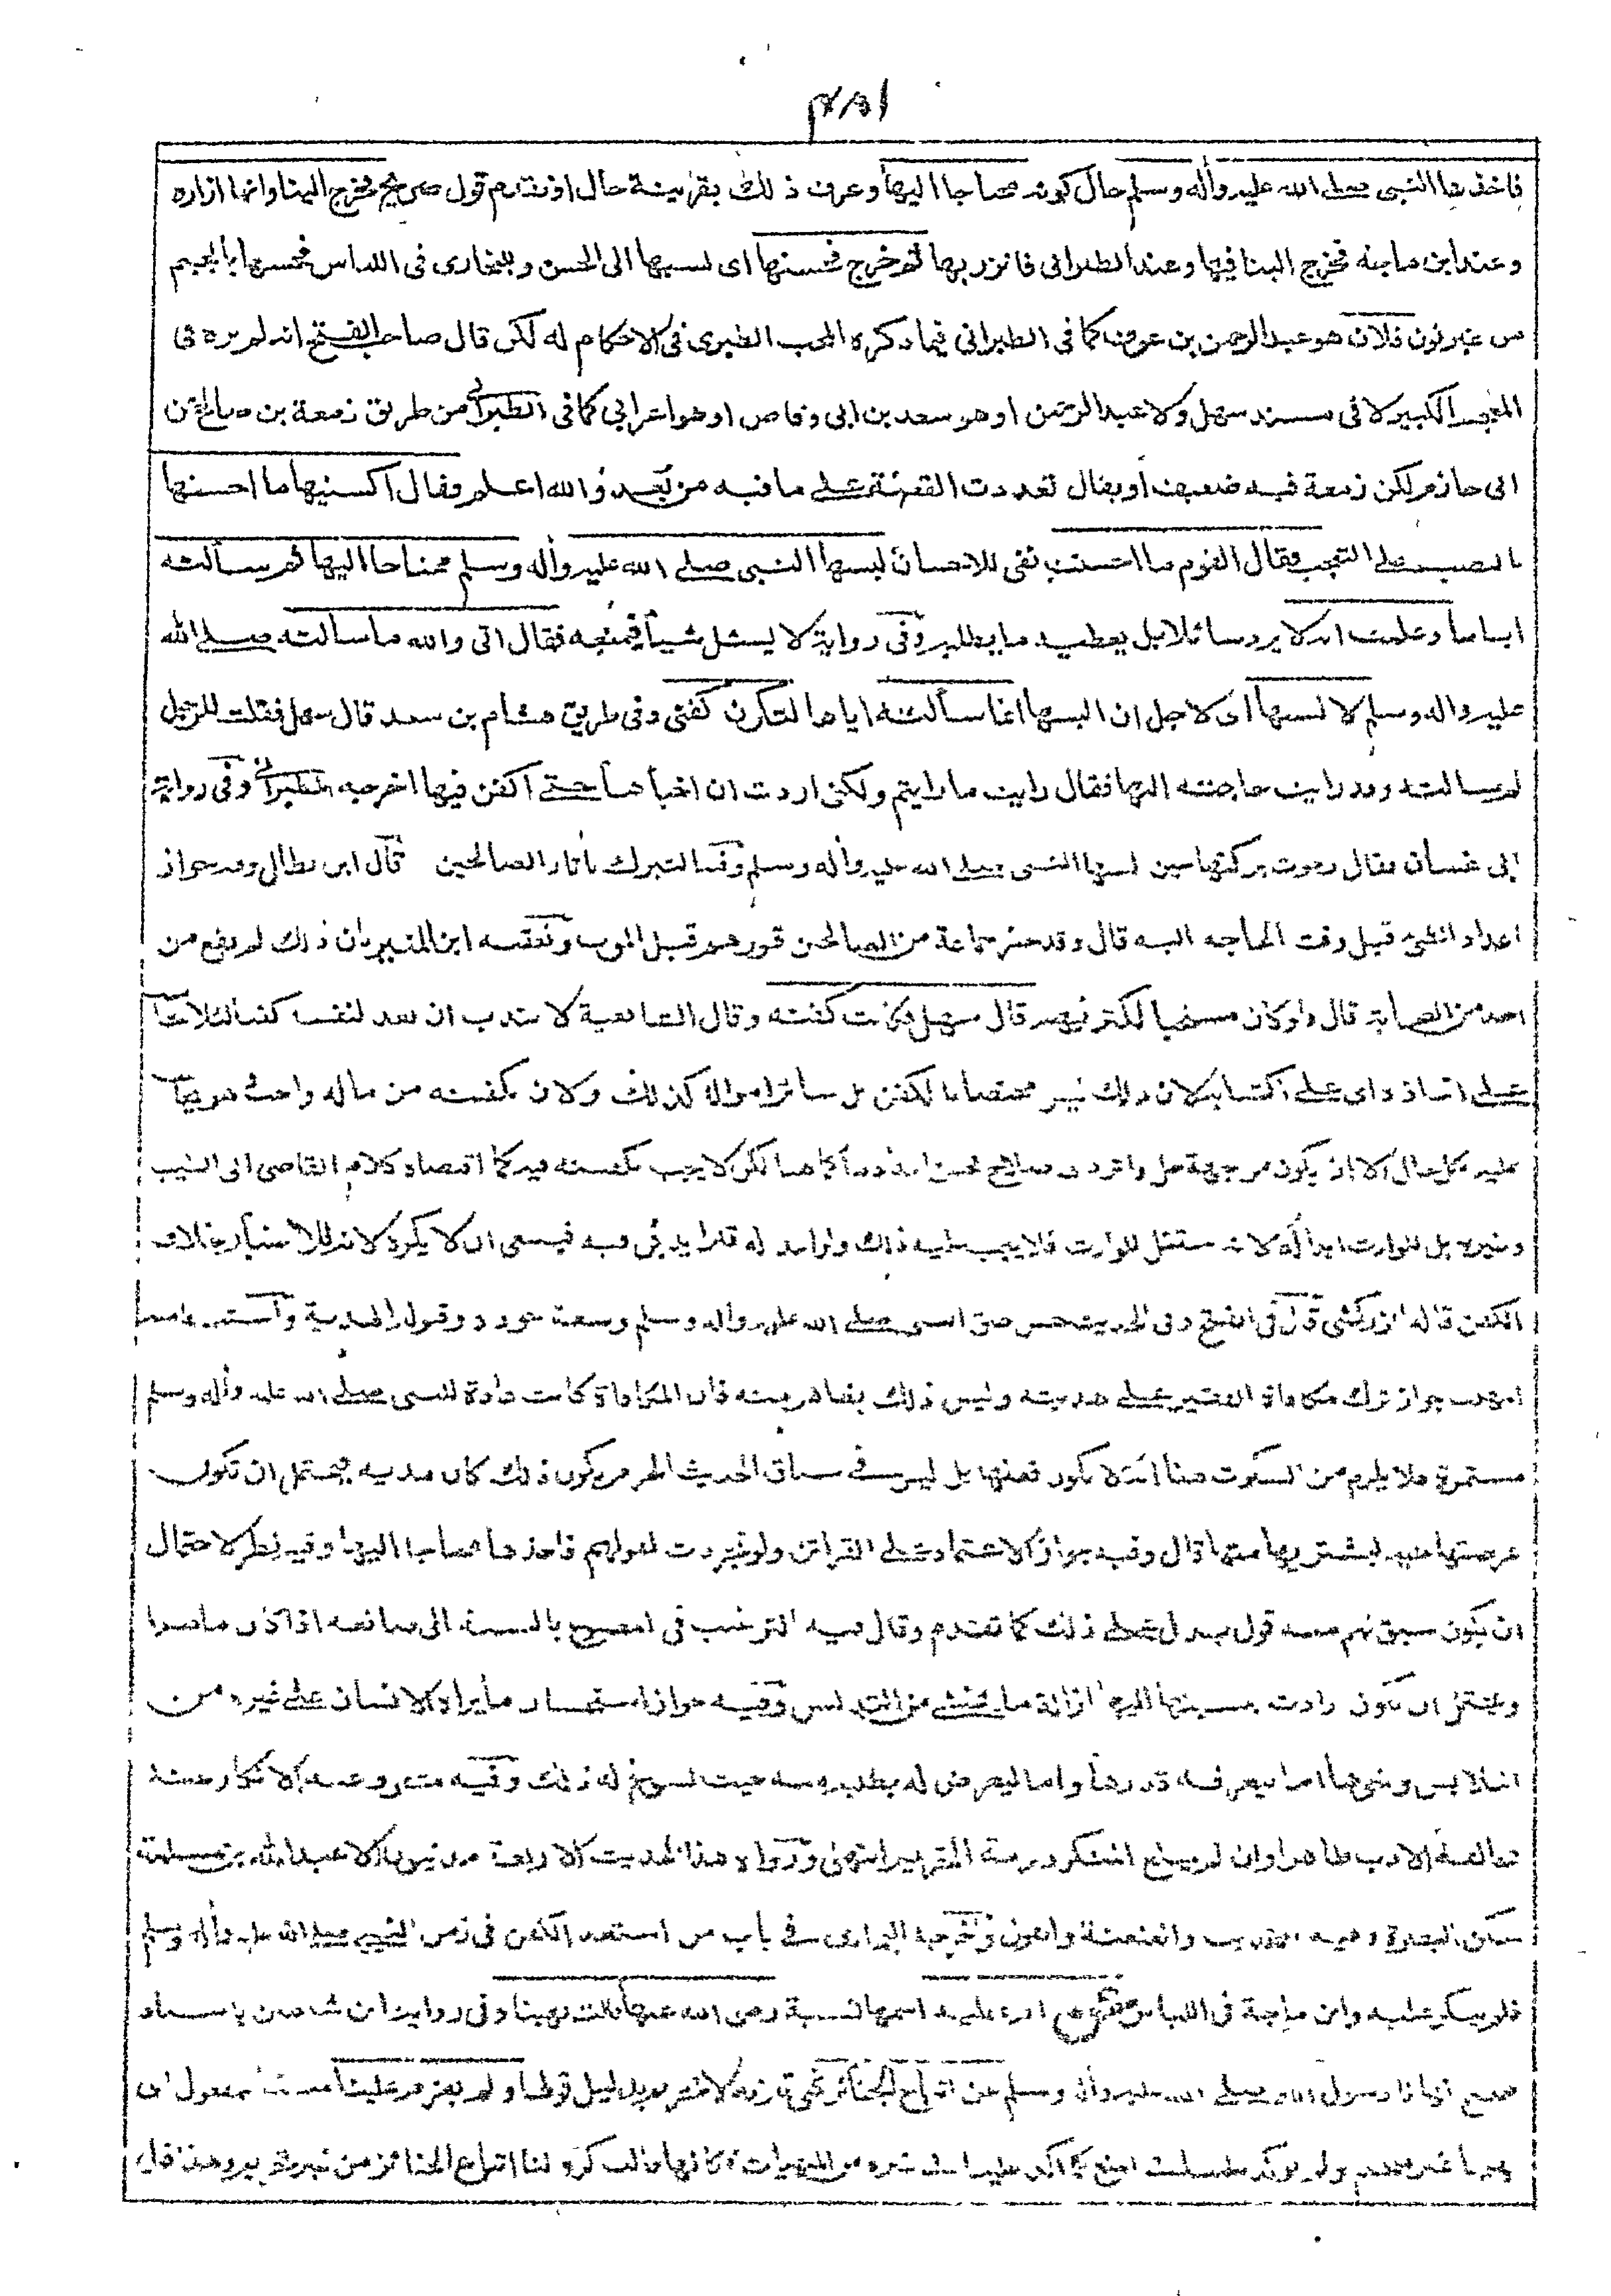 فاخذها النبي صلى الله عليه وأله وسلم حال كونه محتاجا اليها وعرف ذلك بقرينة حال او تقدم قول صريح فخرج الينا وانها ازاره
وعند ابن ماجة فخرج الينا فيها وعند الطبراني فاتزر بها ثم خرج فحسنها اى نسبها الى الحسن وللبخارى فى اللباس فجسها بالجيم
من غير نون فلان هو عبد الرحمن بن عوف كما فى الطبرانى فيما ذكره المحب الطبرى فى الاحكام له لكن قال صاحب الفتح انه لم يره فى
المعجم الكبير لا فى مسند سهل ولا عبد الرحمن او هو سعد بن ابى وقاص او هو اعرابى كما فى الطبرانى من طريق زمعة بن صالح عن
ابى حازم لكن زمعة فيه ضعيف او يقال تعددت القصة على ما فيه من بعد والله اعلم وقال اكسنيها ما احسنها
بالنصب على التعجب فقال القوم ما احسنت نفى للاحسان لبسها النبى صلى الله عليه وأله وسلم محتاجا اليها ثم سألته
اياها وعلمت انه لا يرد سائلا بل يعطيه ما يطلبه وفى رواية لا يسئل شيأ فيمنعه فقال انى والله ما سألته صلى الله
عليه واله وسلم لالبسها اى لاجل ان البسها انما سألته اياها لتكون كفنى وفى طريق هشام بن سعد قال سهل فقلت للرجل
لم سالته وقد رايت حاجته اليها فقال رايت ما رايتم ولكن اردت ان اخبأها حتى اكفن فيها اخرجه الطبرانى وفى رواية
ابى غسان فقال رجوت بركتها حين لبسها النبى صلى الله عليه وأله وسلم وفيه التبرك بأثار الصالحين قال ابن بطال وفيه جواز
اعداد الشئ قبل وقت الحاجه اليه قال وقد حفر جماعة من الصالحين قبورهم قبل الموت وتعقبه ابن المنير بان ذلك لم يقع من
احد من الصحابة قال ولو كان مستحبا لكثر فيهم قال سهل فكانت كفنه وقال الشافعية لا يندب ان يعد لنفسه كفنا لئلا يحاسب
على اتخاذه اى على اكتسابه لان ذلك ليس مختصا بالكفن بل سائر امواله كذلك ولان تكفينه من ماله واجب وهو يحاسب
عليه بكل حال الا ان يكون من جهة حل واثر ذى صلاح فحسن اعداده كما هنا لكن لا يجب تكفينه فيه كما اقتضاه كلام القاضى ابى الطيب
وغيره بل للوارث ابداله لانه ينتقل للوارث فلا يجب عليه ذلك ولو اعد له قبرا يدفن فيه فينبغى ان لا يكره لانه للاعتبار بخلاف
الكفن قاله الزركشى قال فى الفتح وفى الحديث حسن خلق النبى صلى الله عليه واله وسلم وسعة جوده وقبوله الهدية واستنبط منه
المهلب جواز ترك مكافاة الفقير على هديته وليس ذلك بظاهر منه فان المكافاة كانت عادة النبى صلى الله عليه وأله وسلم
مستمرة فلا يلزم من السكوت هنا ان لا يكون فعلها بل ليس فى سياق الحديث الجزم بكون ذلك كان هدية فيحتمل ان تكون
عرضتها عليه ليشتريها منها قال وفيه جواز الاعتماد على القرائن ولو تجردت لقولهم فاخذها محتاجا اليها وفيه نظر لاحتمال
ان يكون سبق لهم منه قول يدل على ذلك كما تقدم وقال فيه الترغيب فى المصنوع بالنسبة الى صانعه اذا كان ماهرا
ويحتمل ان تكون ارادت بنسبتها اليها ازالة ما يخشى من التدليس وفيه جواز استحسان ما يراه الانسان على غيره من
الملابس وغيرها اما ليعرفه قدرها واما ليعرض له بطلبه منه حيث يسوغ له ذلك وفيه مشروعية الانكار عند
مخالفة الادب ظاهرا وان لم يبلغ المنكر درجة التحريم انتهى ورواة هذا الحديث الاربعة مدنيون الا عبد الله بن مسلمة
سكن البصرة وفيه التحديث والعنعنة والقول واخرجه البخارى فى باب من استعد الكفن فى زمن النبى صلى الله عليه وأله وسلم
فلم ينكر عليه وابن ماجة فى اللباس عن ام عطية اسمها نسيبة رضى الله عنها قالت نهينا وفى رواية ابن شاهين باسناد
صحيح نهانا رسول الله صلى الله عليه وأله وسلم عن اتباع الجنائز نهى تنزيه لا تحريم بدليل قولها ولم يعزم علينا مبنيا للمفعول اى
نهيا غير محتم ولم يؤكد علينا فى المنع كما اكد علينا فى غيره من المنهيات فكأنها قالت كره لنا اتباع الجنائز من غير تحريم وهذا قول